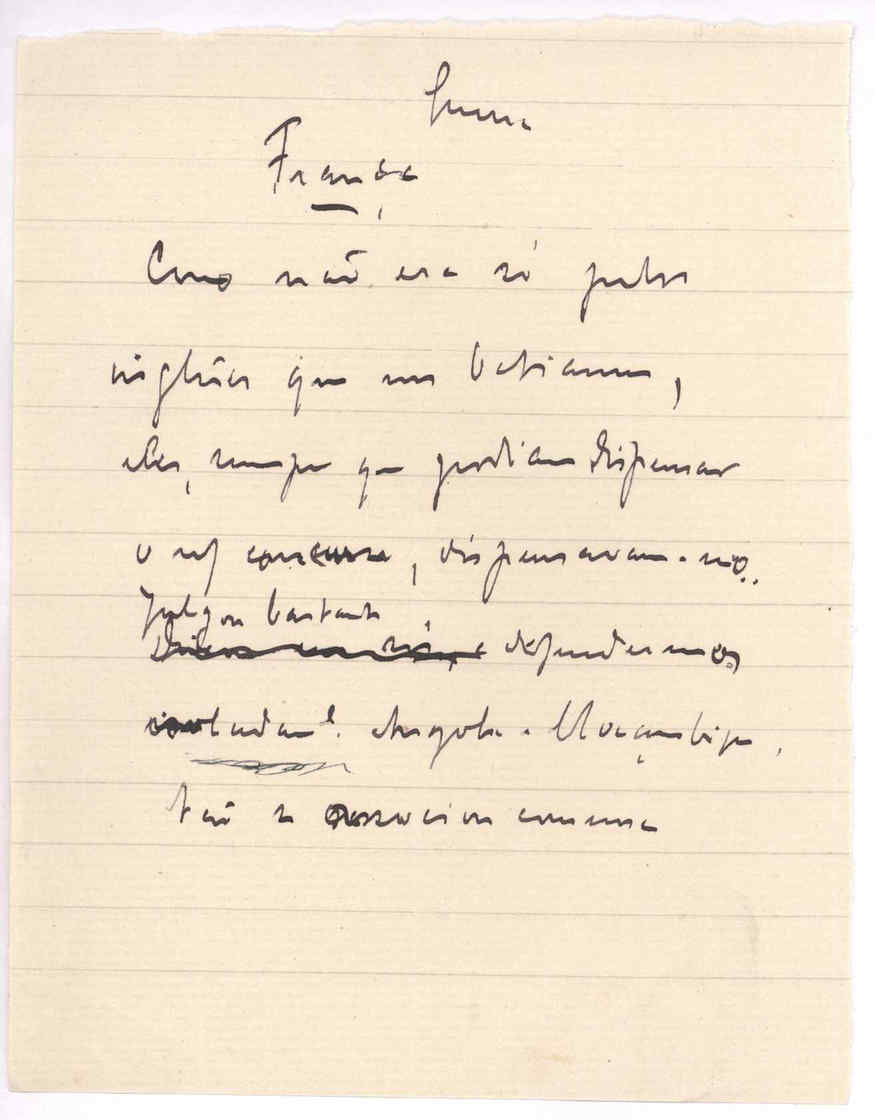 Guerra
França
Como não era só pelos
ingleses que nos batiamos,
eles, sempre que podiam dispensar
o nosso concurso, dispensavam-no.
Julgou bastante
defendermos
isoladam.e Angola e Moçambique,
Não se associou comnosco